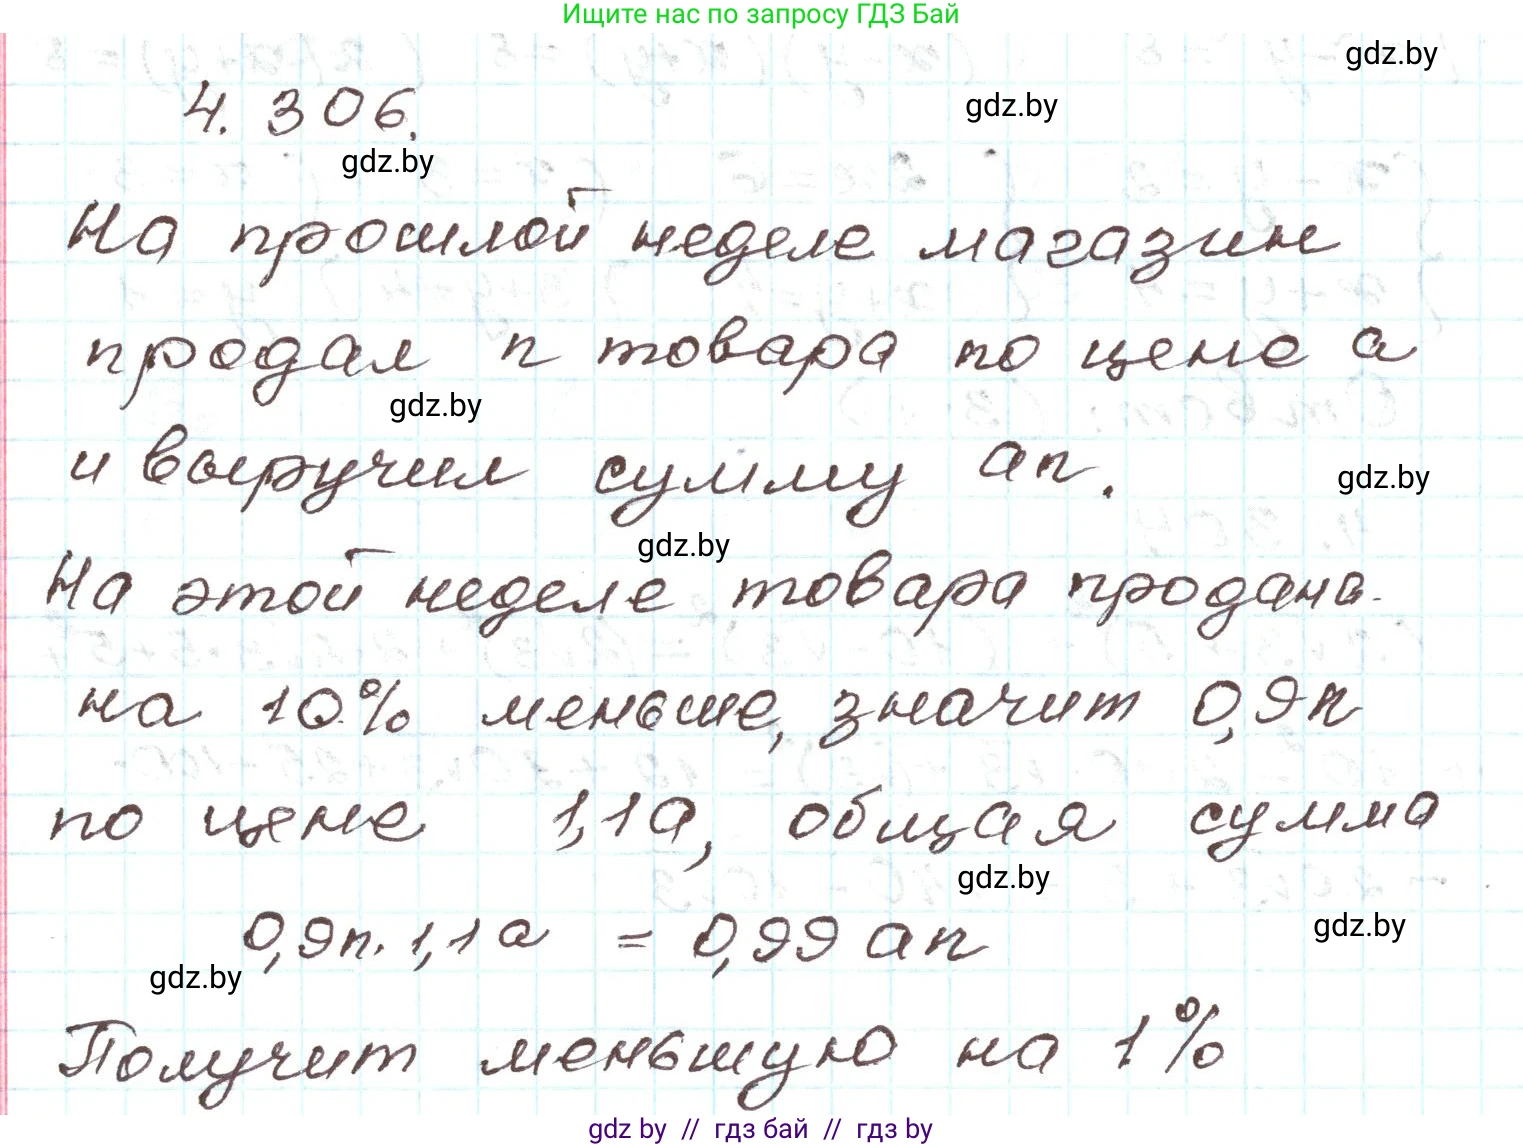 Ищите нас по запросу ГДЗ Бай
gdz.by
4.306.
gdz.by
gdz.by
На прошлой неделе магазин
продал n товара по цене a
gdz.by
и выручил сумму an.
gdz.by
gdz.by
На этой неделе товара продано
на 10% меньше, значит 0,9n
по цене 1,1a, общая сумма
gdz.by
0,9n·1,1a = 0,99an
gdz.by
gdz.by
Получит меньшую на 1%
gdz by // гдз бай // гдз by